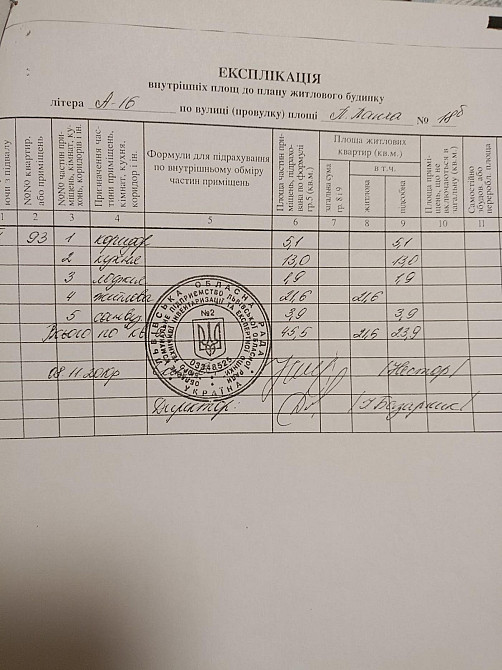 ЕКСПЛІКАЦІЯ
внутрішніх площ до плану житлового будинку
літера А-16 по вулиці (провулку) площі № 18б
ючи з підвалу
№№ квартир. або приміщень
№№ частин приміщень, кімнат, кухонь, коридорів і ін.
Призначення частини приміщень, кімнат, кухня, коридор і ін.
Формули для підрахування по внутрішньому обміру частин приміщень
Площа частин приміщень, підрахована по формулі гр.5 (кв.м.)
Площа житлових квартир (кв.м.)
загальна сума гр. 8 і 9
в т.ч.
житлова
підсобна
Площа приміщень, що не включаються в загальну (кв.м.)
Самостійно збудов. або переробл. площа
1 2 3 4 5 6 7 8 9 10 11
93 1 коридор 5,1 5,1
2 кухня 13,0 13,0
3 лоджия 1,9 1,9
4 житлова 21,6 21,6
5 санвуз. 3,9 3,9
Всього по кв 45,5 21,6 23,9
08.11.20
/Нестор/
Директор:
№2
03348525
УКРАЇНА